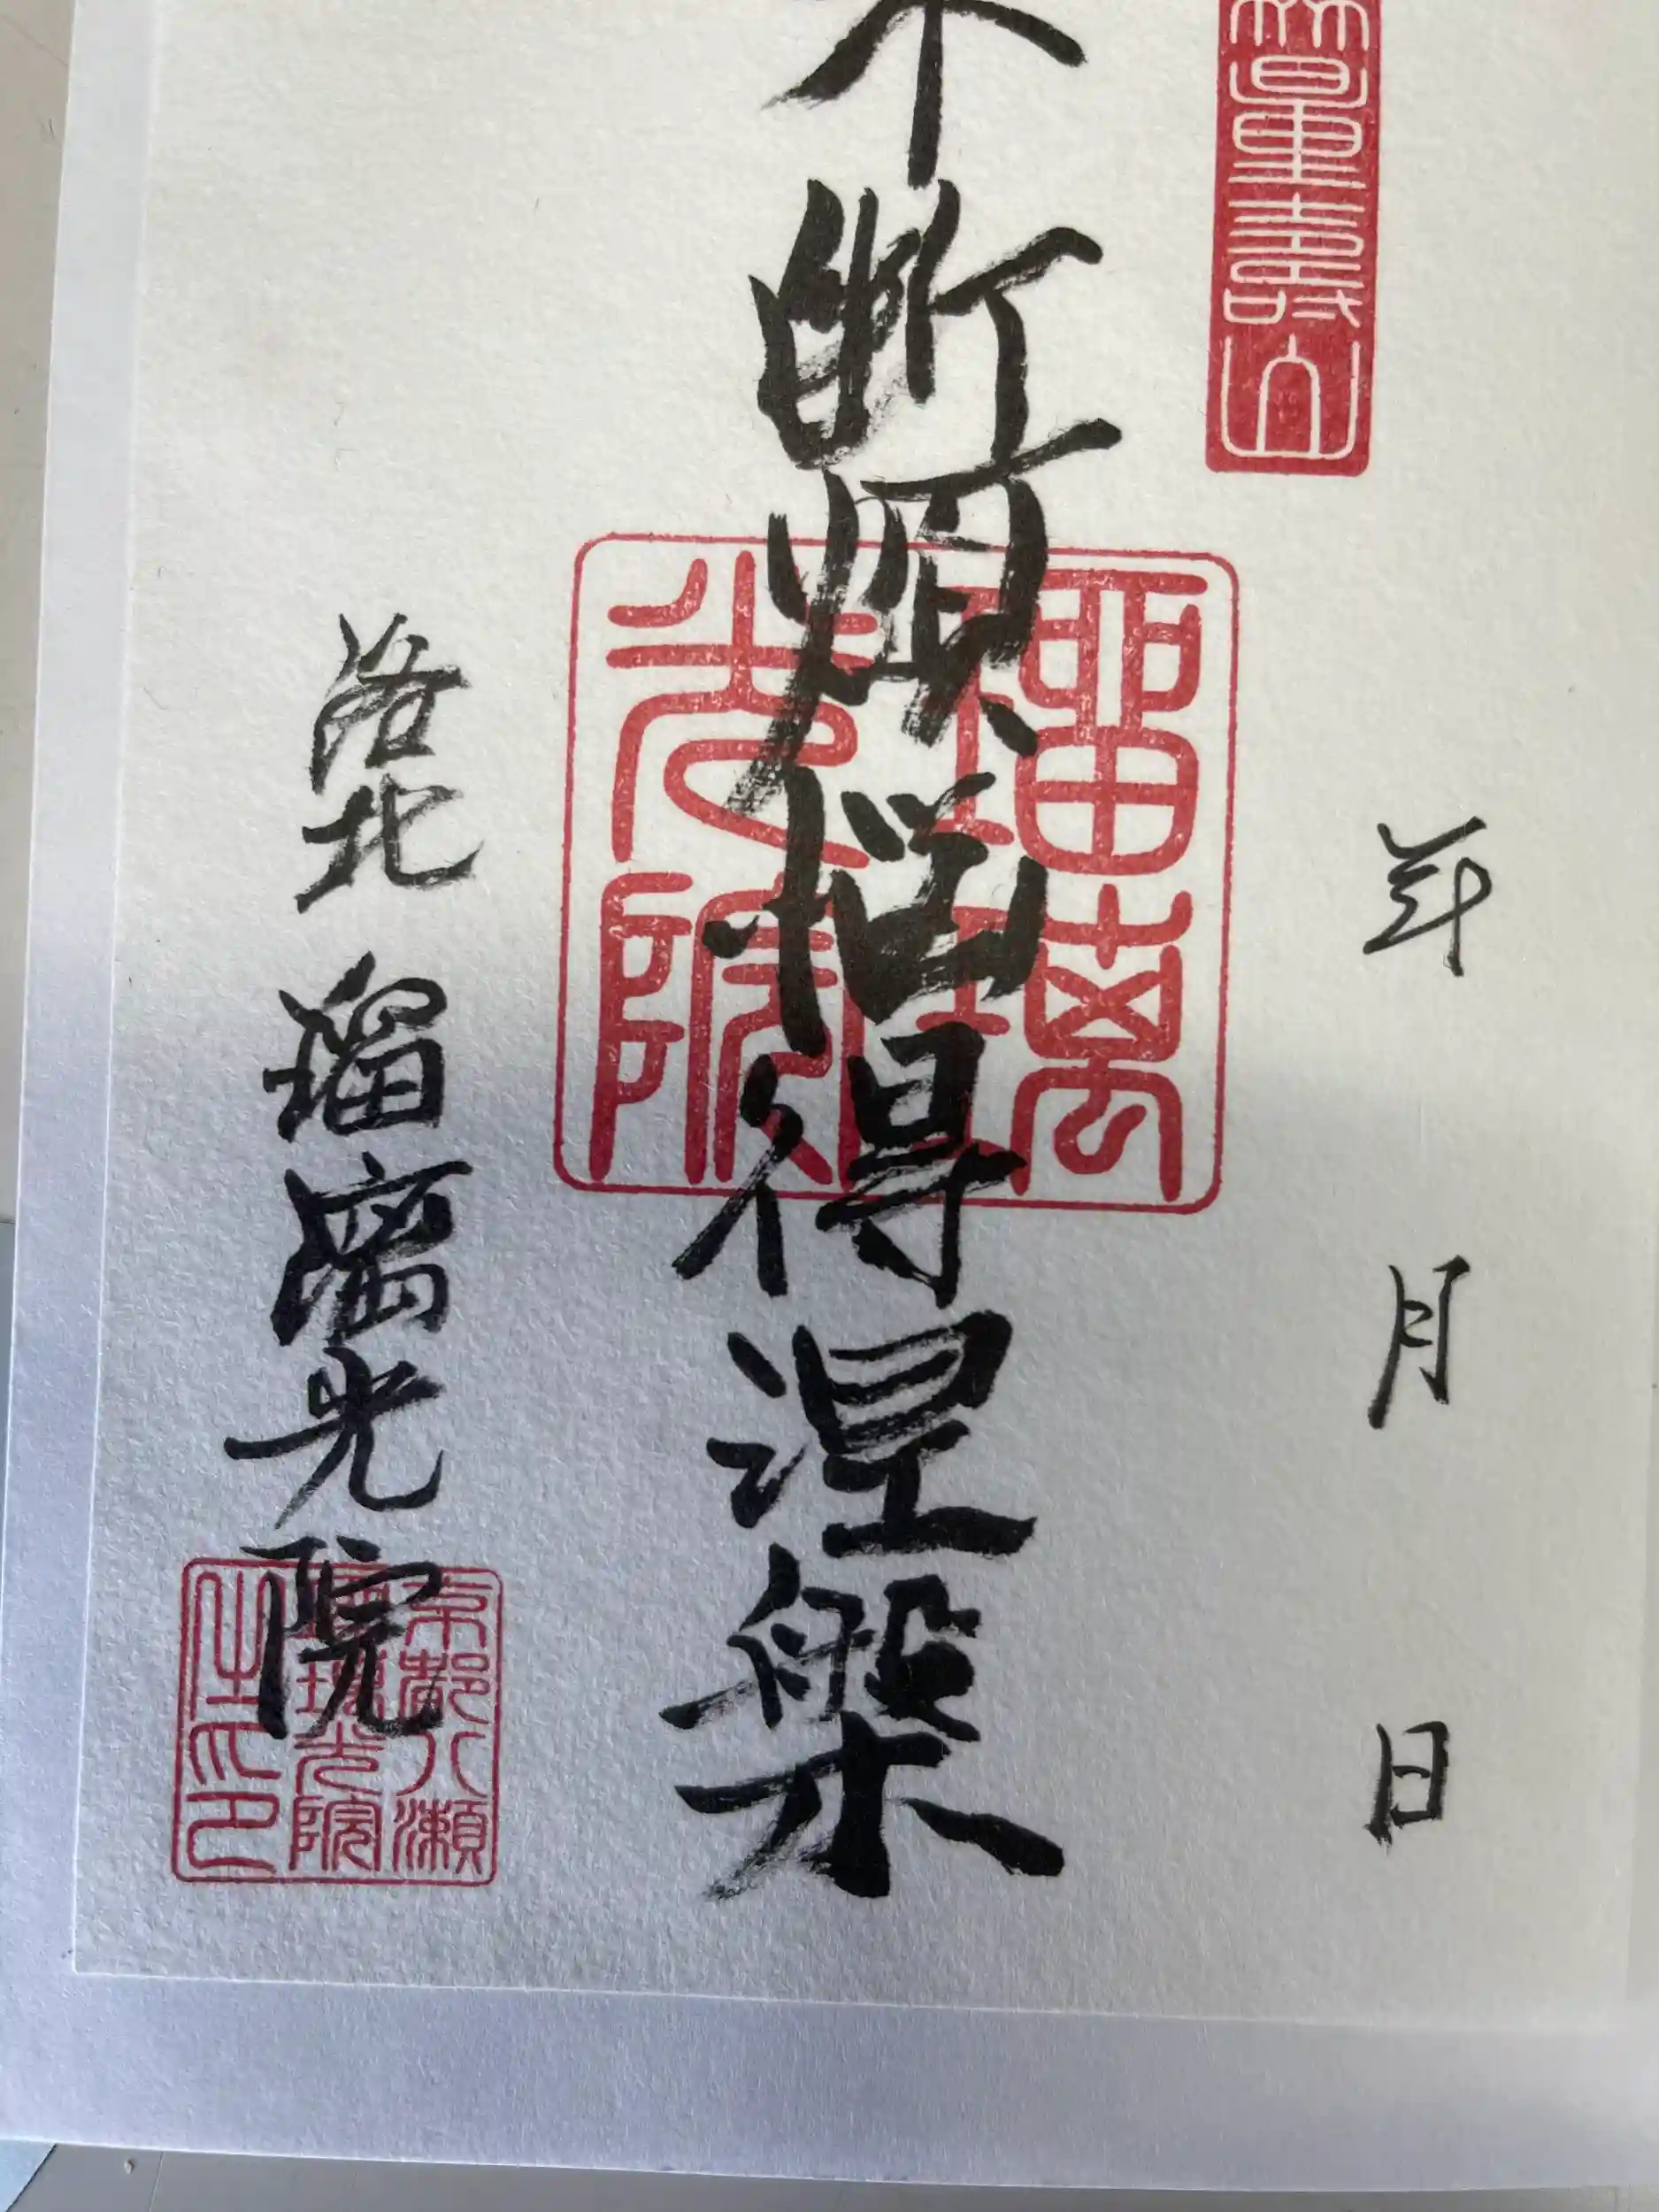 量壽山
年 月 日
不断煩悩得涅槃
瑠璃光院
洛北 瑠璃光院
京都八瀬
瑠璃光院
之印